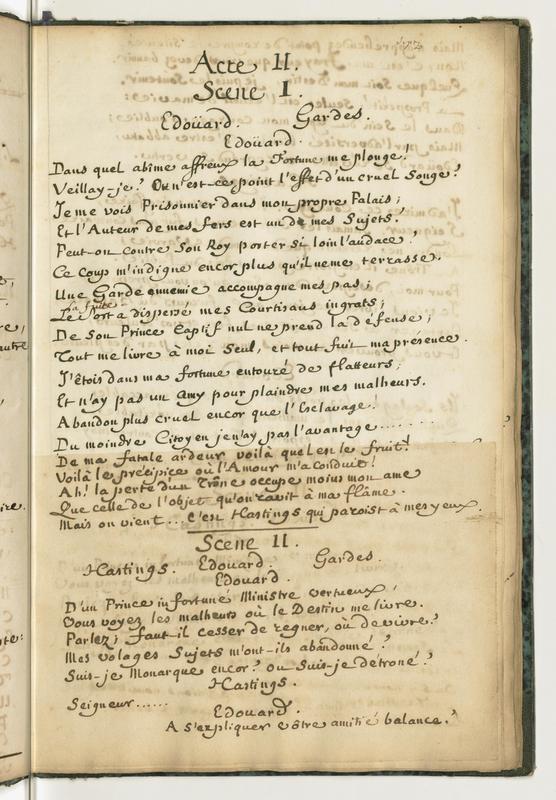 Acte II.
Scene I.
Edoüard. Gardes.
Edoüard.
Dans quel abîme affreux la Fortune me plonge!
Veillay-je? Ou n'est-ce point l'effet d'un cruel Songe?
Je me vois Prisonnier dans mon propre Palais;
Et l'Auteur de mes fers est un de mes Sujets!
Peut-on contre Son Roy porter si loin l'audace!
Ce coup m'indigne encor plus qu'il ne me terrasse.
Une Garde ennemie accompagne mes pas;
la fuite
Le Sort a dispersé mes Courtisans ingrats;
De Son Prince Captif nul ne prend la défense;
Tout me livre à moi Seul, et tout fuit ma présence.
J'êtois dans ma fortune entouré de flatteurs;
Et n'ay pas un Amy pour plaindre mes malheurs.
Abandon plus cruel encor que l'Esclavage!
Du moindre Citoyen je n'ay pas l'avantage........
De ma fatale ardeur voilà quel en le fruit!
Voilà le précipice où l'Amour m'a conduit!
Ah! la perte d'un Trône occupe moins mon ame
Que celle de l'objet qu'on ravit à ma flâme.
Mais on vient... C'est Hastings qui paroist à mes yeux.
Scene II.
Hastings. Edouard. Gardes.
Edouard.
D'un Prince infortuné Ministre vertueux,
Vous voyez les malheurs où le Destin me livre.
Parlez; faut-il cesser de regner, où de vivre?
Mes volages Sujets m'ont-ils abandonné?
Suis-je Monarque encor? ou Suis-je détroné?
Hastings.
Seigneur......
Edouard.
A s'expliquer vôtre amitié balance?